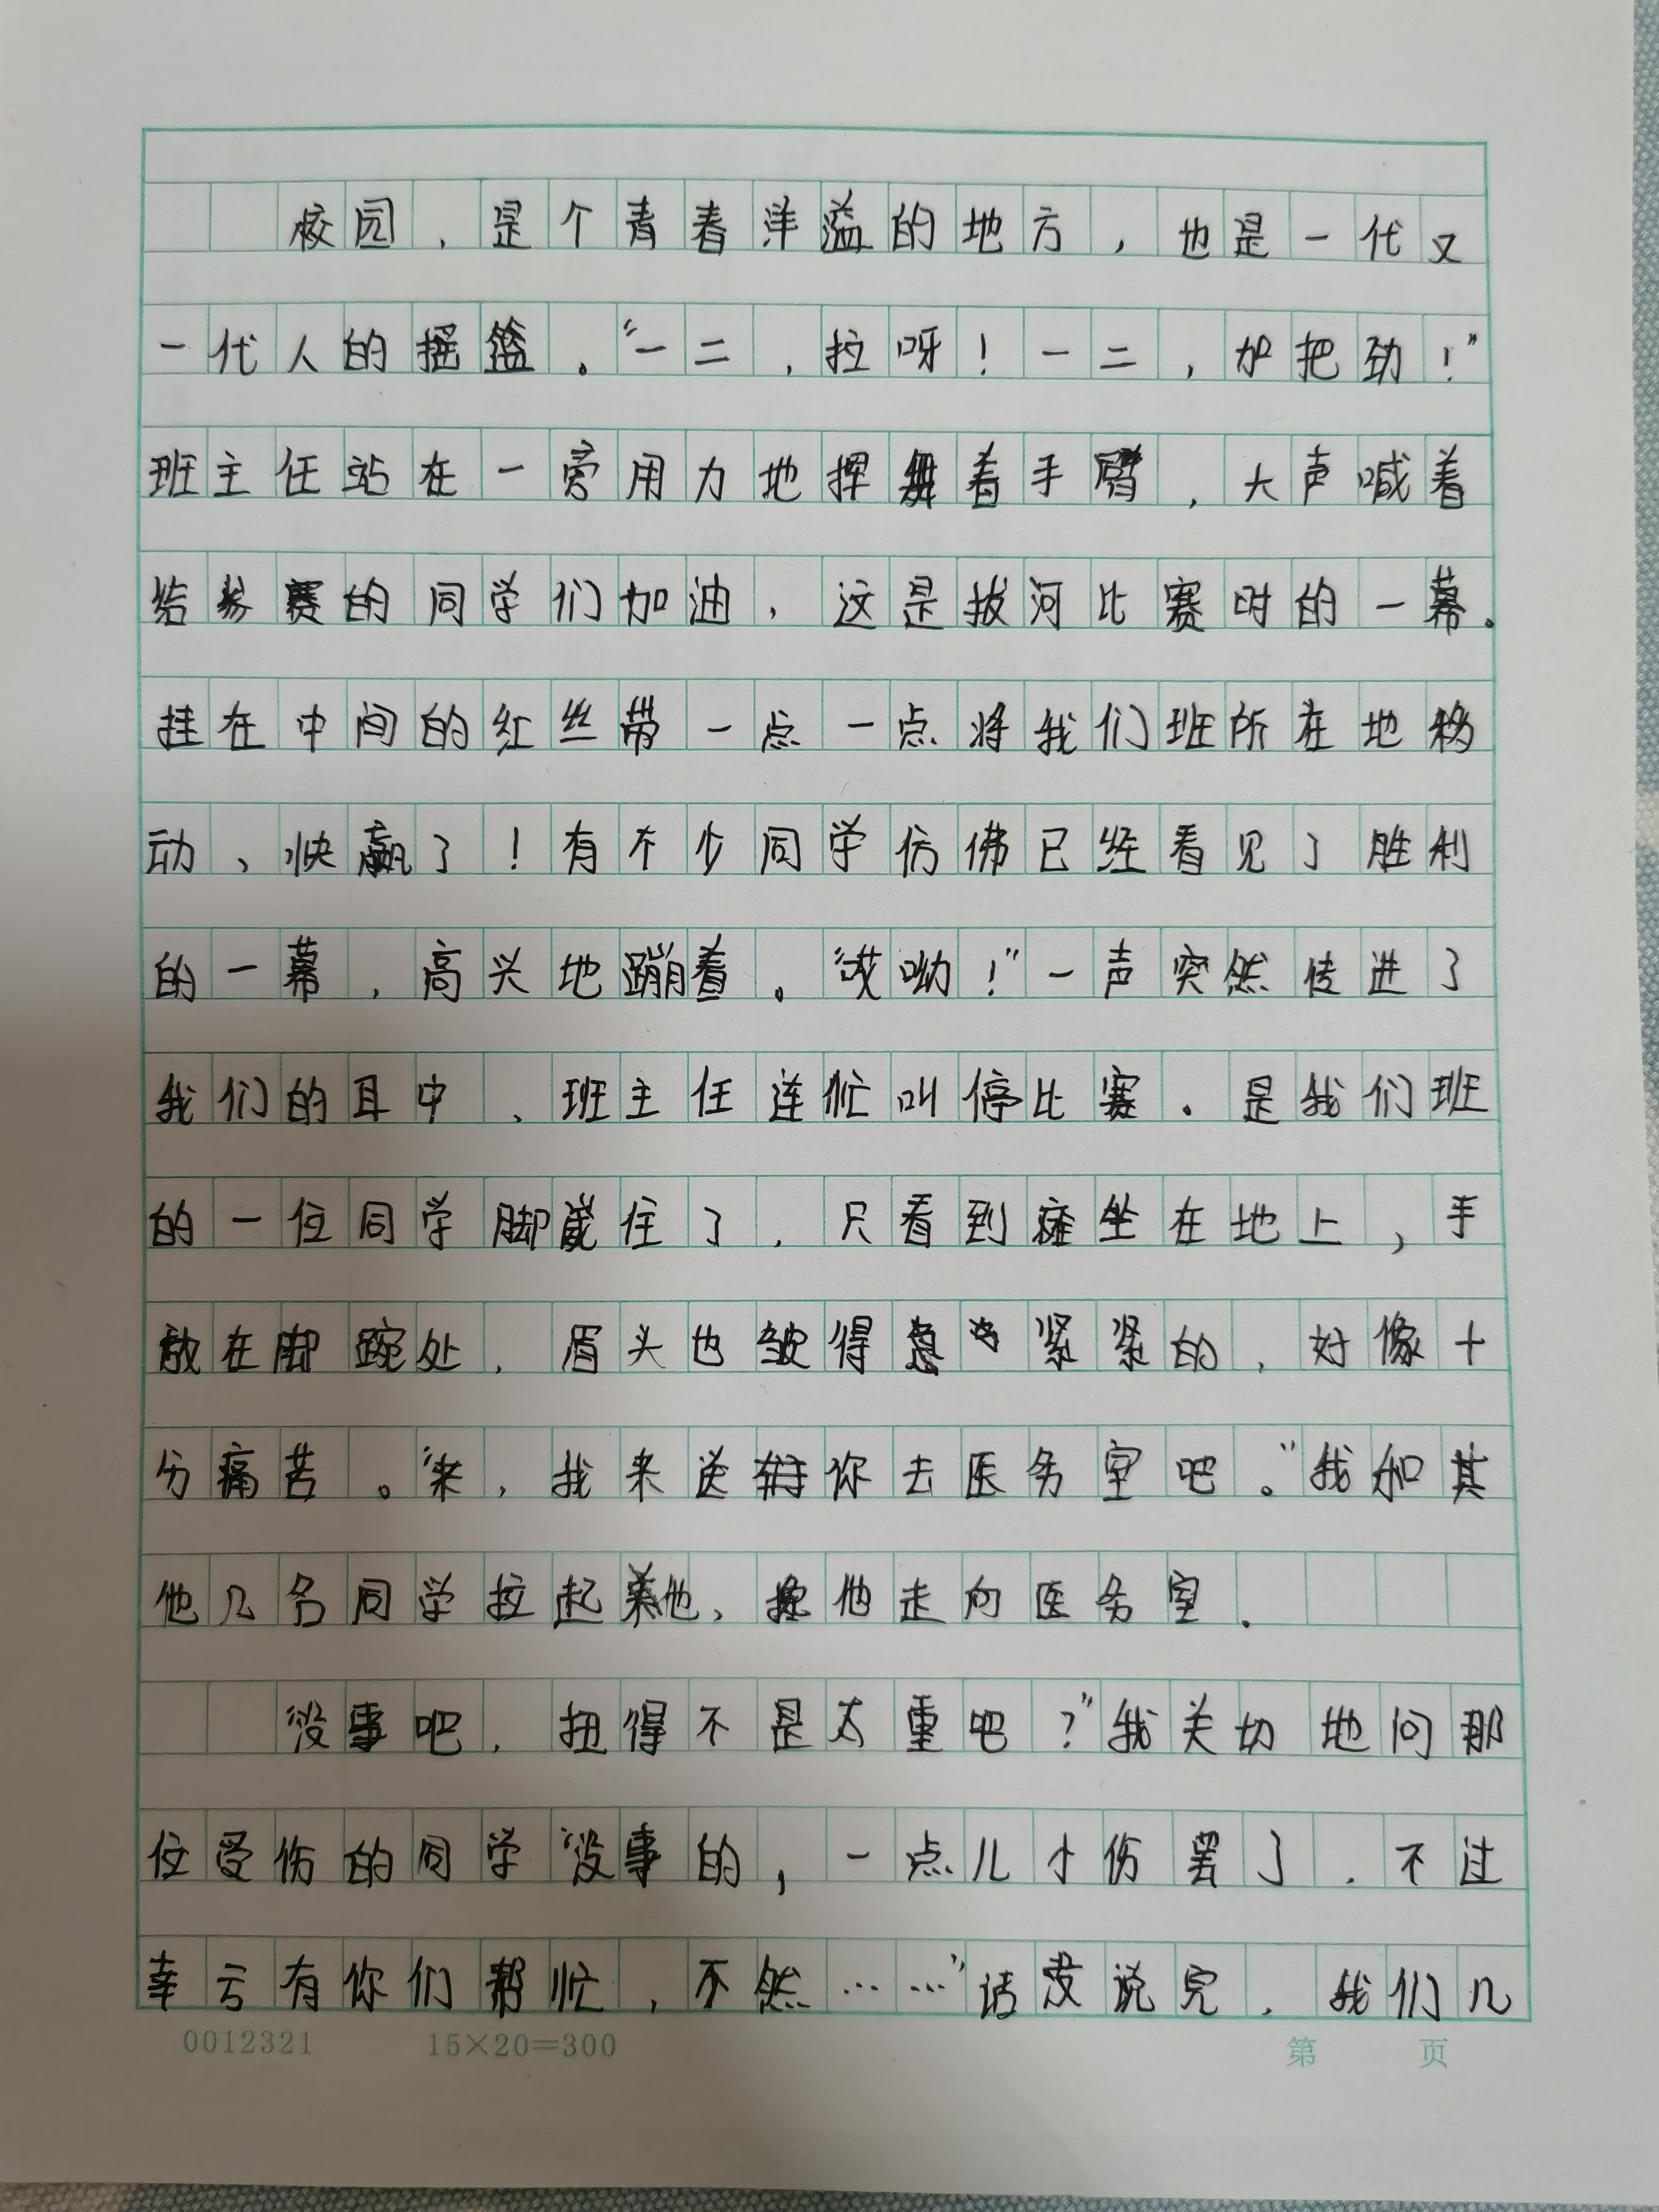 校园，是个青春洋溢的地方，也是一代又
一代人的摇篮。“一二，拉呀！一二，加把劲！”
班主任站在一旁用力地挥舞着手臂，大声喊着
给参赛的同学们加油，这是拔河比赛时的一幕。
挂在中间的红丝带一点一点将我们班所在地移
动，快赢了！有不少同学仿佛已经看见了胜利
的一幕，高兴地蹦着。“哎呦！”一声突然传进了
我们的耳中，班主任连忙叫停比赛。是我们班
的一位同学脚崴住了，只看到瘫坐在地上，手
放在脚踝处，眉头也皱得紧紧的，好像十
分痛苦。“来，我来送你去医务室吧。”我和其
他几名同学拉起他，搀他走向医务室.
“没事吧，扭得不是太重吧？”我关切地问那
位受伤的同学“没事的，一点儿小伤罢了，不过
幸亏有你们帮忙，不然……”话没说完，我们几
0012321 15×20=300 第 页